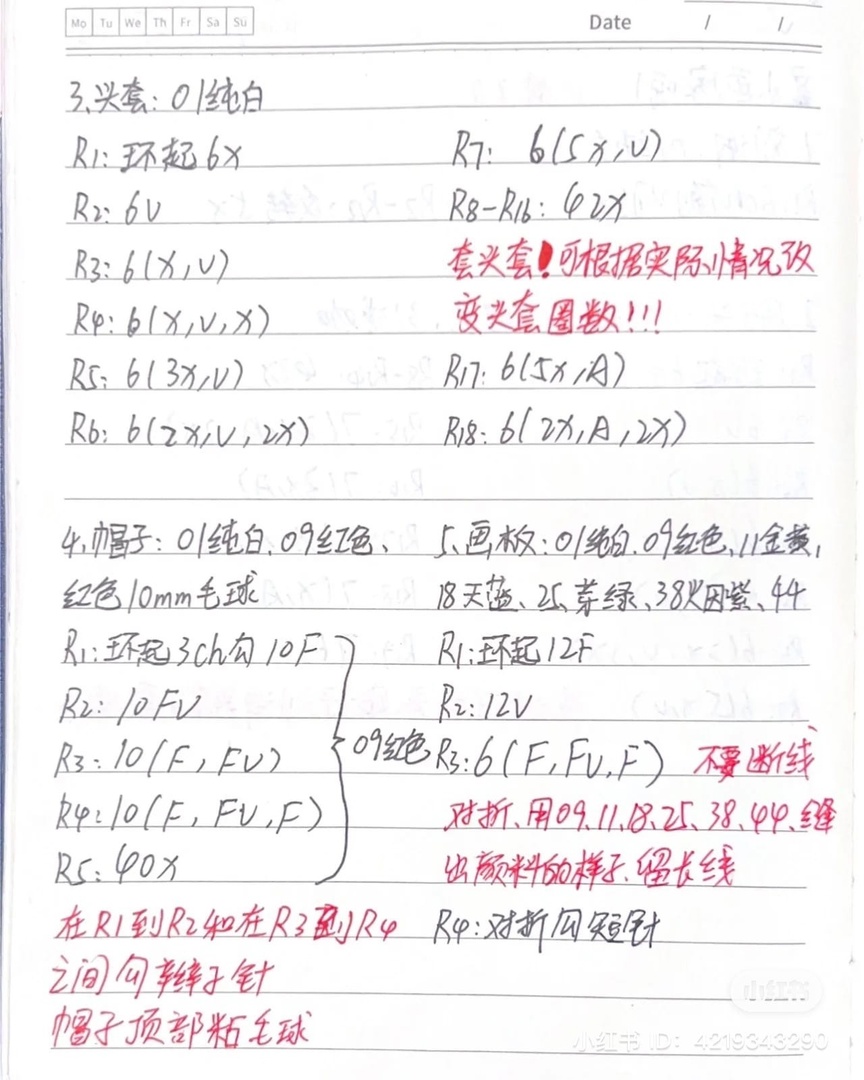 Mo Tu We Th Fr Sa Su
Date / /
3、头套：01纯白
R1：环起6X
R2：6V
R3：6(X,V)
R4：6(X,V,X)
R5：6(3X,V)
R6：6(2X,V,2X)
R7： 6(5X,V)
R8-R16：42X
套头套！可根据实际情况改
变头套圈数!!!
R17：6(5X,A)
R18：6(2X,A,2X)
4、帽子：01纯白、09红色、
红色10mm毛球
R1：环起3ch勾10F
R2：10FV
R3：10(F,FV)
R4：10(F,FV,F)
R5：40X
09红色
在R1到R2和在R3到R4
之间勾辫子针
帽子顶部粘毛球
5、画板：01纯白、09红色、11金黄、
18天蓝、25芽绿、38火因紫、44
R1：环起12F
R2：12V
R3：6(F,FV,F) 不要断线
对折、用09、11、18、25、38、44、缝
出颜料的样子、留长线
R4：对折勾短针
小红书
小红书 ID：4219343290